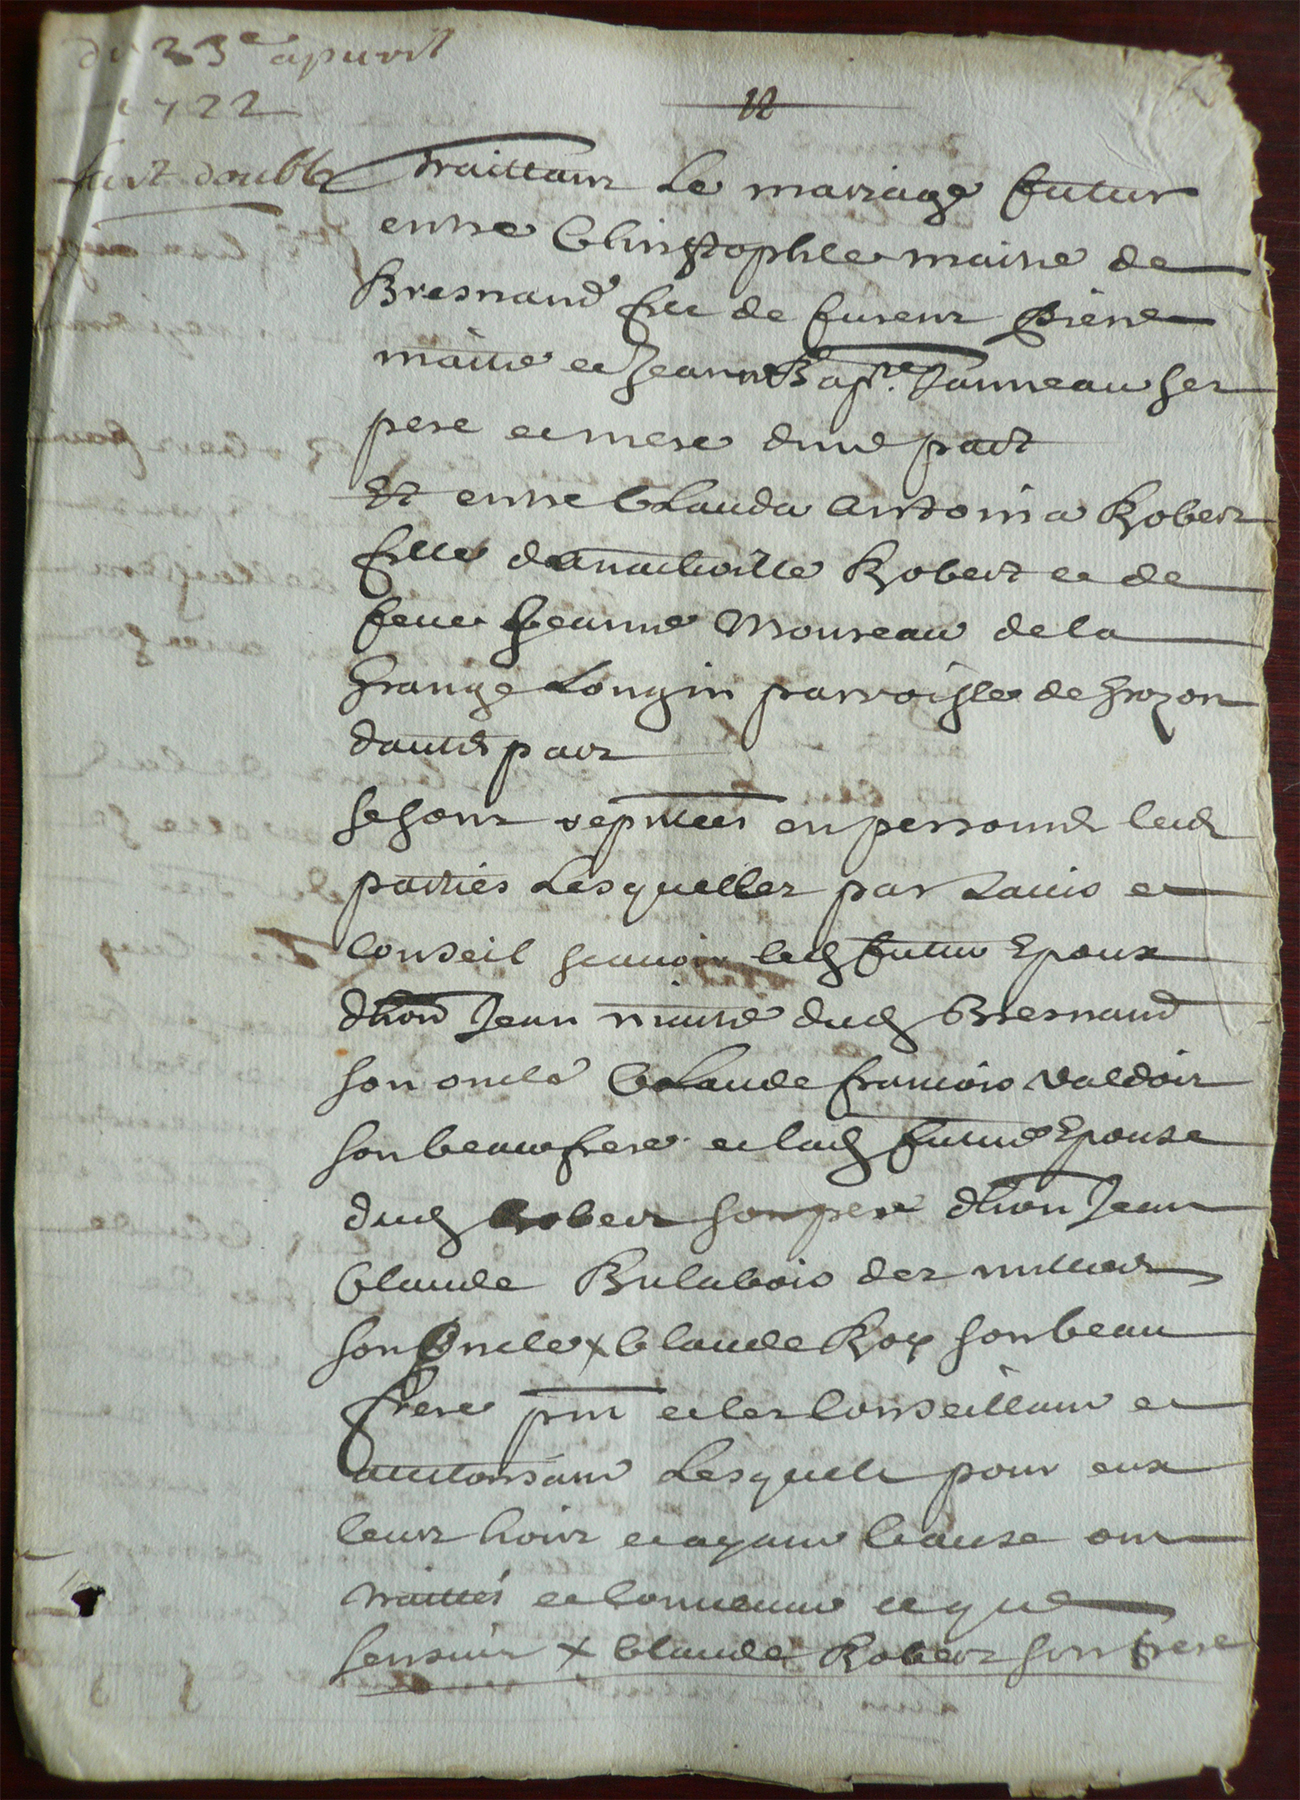 du 23e apuril
1722
12
fait double
Traittant Le mariage futur
entre Christophle maitre de
Bresnand fils de furent pierre
maitre et Jeanne Bapte. Janneau ses
pere et mere d'une part
Et entre Claude Antoina Robert
fille d'anatoille Robert et de
feue Jeanne Moureau de la
Grange Longin parroisse de Grozon
dautre part
se sont repntees en personne lesd
parties Lesquelles par Lauis et
Conseil scauoir led futur Epoux
dhon Jean maitre dud Bresnand
son oncle Claude francois valdoir
son beaufrere et lad future Epouse
dud Robert son pere dhon Jean
Claude Bulabois des
son Oncle x Claude Roy son beau
frere pnt et les Conseillant et
authorisant Lesquels pour eux
leurs hoirs et ayant Cause ont
traittés et Conuenu ce que
sensuit x Claude Robert son frere